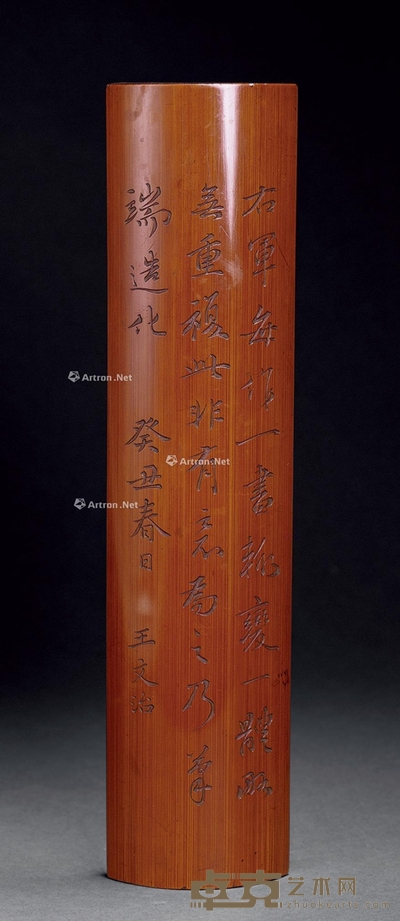 右軍每作一書輒變一體略
無重複此非有意為之乃筆
端造化
癸丑春日
王文治
Artron.Net
Artron.Net
Artron.Net
卓克艺术网
zhuokearts.com